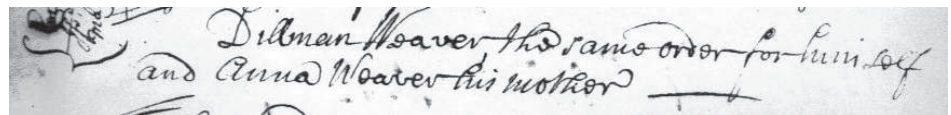 Dillman Weaver the same order for himself
and Anna Weaver his mother